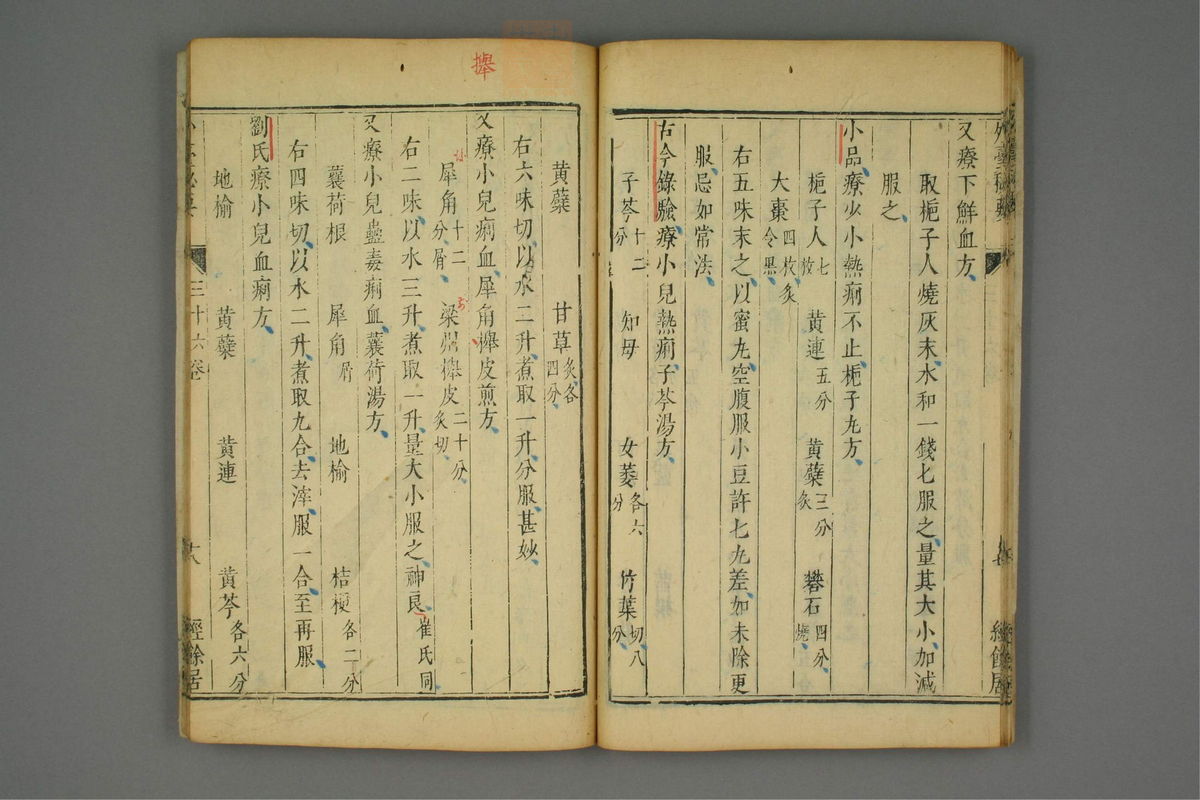 外臺秘要
又療下鮮血方
取梔子人燒灰末水和一錢匕服之量其大小加減
服之
小品療少小熱痢不止梔子丸方
梔子人七枚 黃連五分 黃蘗三分炙 礬石四分燒
大棗四枚炙令黑
右五味末之以蜜丸空腹服小豆許七丸差如未除更
服忌如常法
古今錄驗療小兒熱痢子芩湯方
子芩十二分 知母 女萎各六分 竹葉切八分
經餘居
黃蘗 甘草炙各四分
右六味切以水二升煮取一升分服甚妙
又療小兒痢血犀角榉皮煎方
犀角十二分屑 梁州榉皮二十分炙切
右二味以水三升煮取一升量大小服之神良崔氏同
又療小兒蠱毒痢血蘘荷湯方
蘘荷根 犀角屑 地榆 桔梗各二分
右四味切以水二升煮取九合去滓服一合至再服
劉氏療小兒血痢方
地榆 黃蘗 黃連 黃芩各六分
三十六卷
經餘居